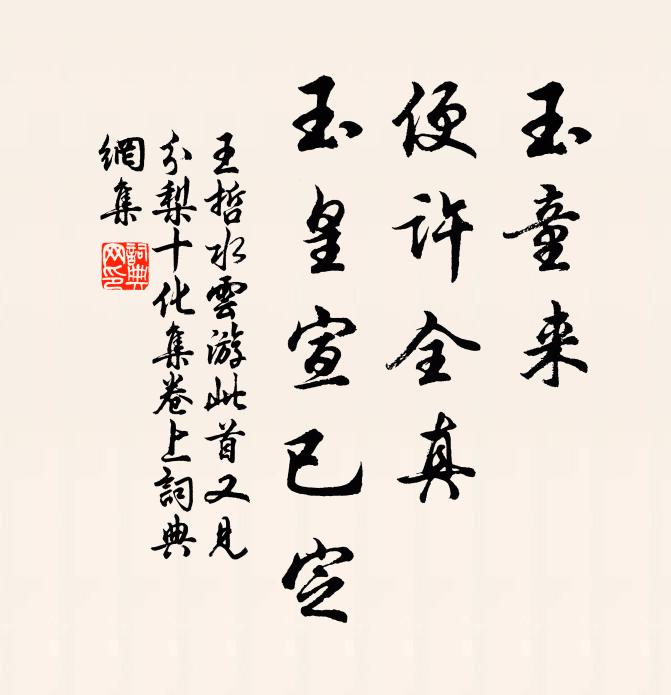 玉童来
便许全真
玉皇宣已定
王哲水雲游此首又见
分梨十化集卷上詞典
網集
詞典網印